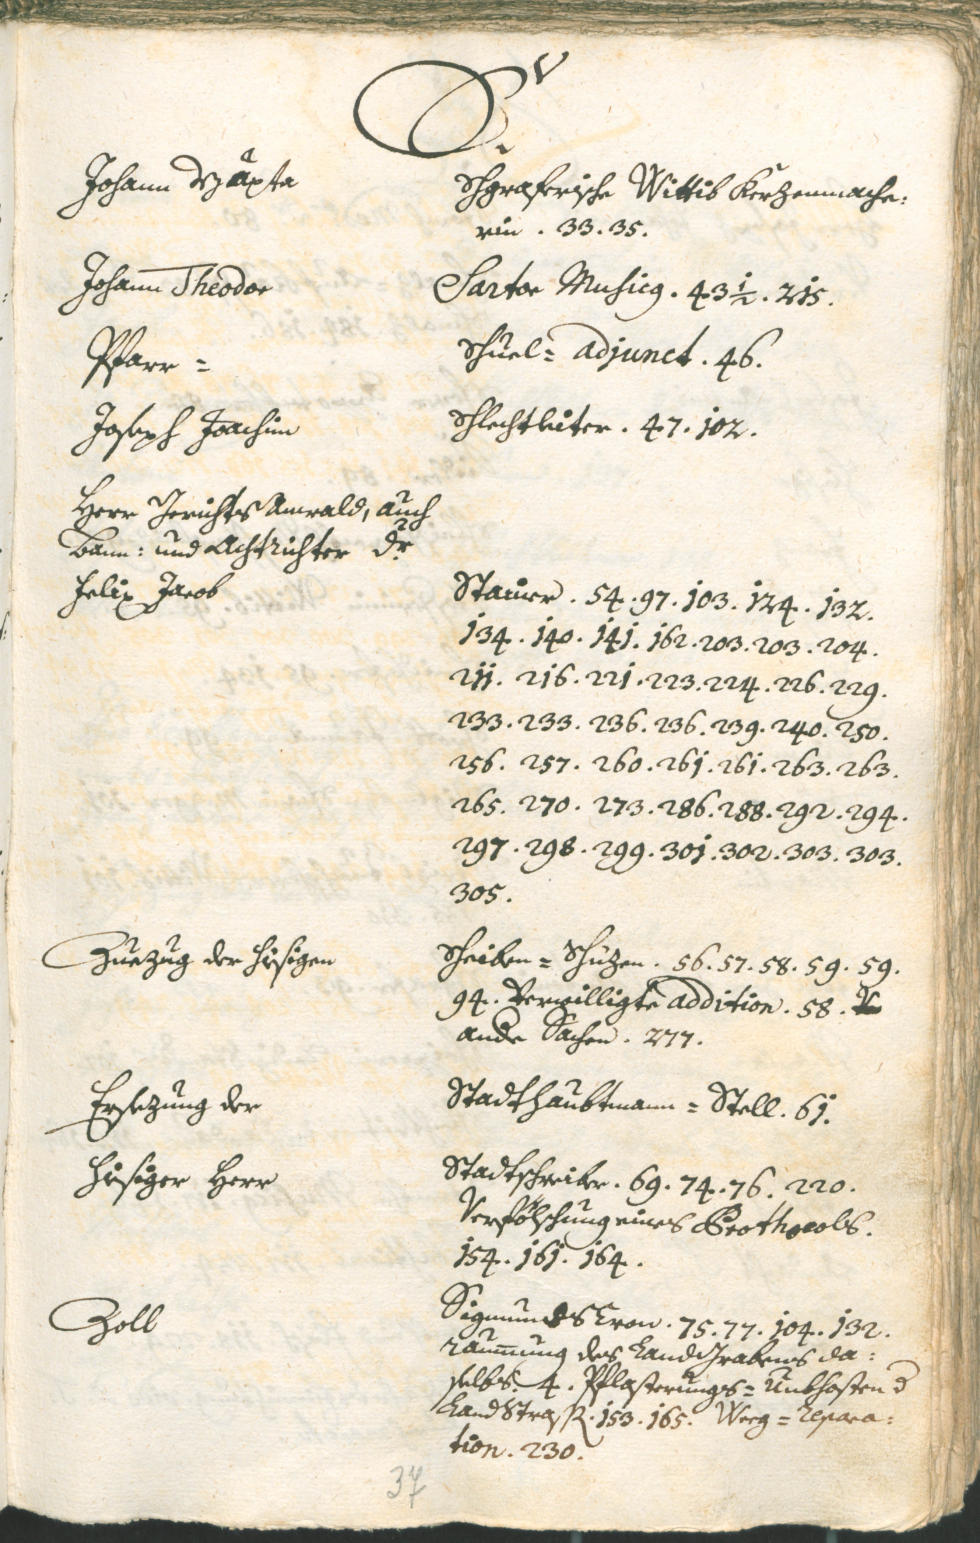 S.
Johann Bapta
Schgraferische Wittib Kertzenmache:
rin . 33. 35.
Johann Theodor
Sartor Musicq . 43 1/2 . 215.
Pfarr =
Schuel= adjunct . 46.
Joseph Joachim
Schlechtleiter . 47. 102.
Herr Gerichts Anwald, auch
Bann: und Achtrichter Dr
Felix Jacob
Stainer . 54. 97. 103. 124. 132.
134. 140. 141. 162. 203. 203. 204.
211. 216. 221. 223. 224. 226. 229.
233. 233. 236. 236. 239. 240. 250.
256. 257. 260. 261. 261. 263. 263.
265. 270. 273. 286. 288. 292. 294.
297. 298. 299. 301. 302. 303. 303.
305.
Zuezug der hisigen
Scheiben = Schüzen . 56. 57. 58. 59. 59.
94. Verwilligte addition . 58.
andr Sachen . 277.
Ersezung der
Stadthaubtmann = Stell . 61.
hisiger Herr
Stadtschreiber . 69. 74. 76. 220.
Verfölschung eines Prothocols.
154. 161. 164.
Zoll
Sigmundscron . 75. 77. 104. 132.
raumung des Landgrabens da:
selbs. 4. Pflasterungs= Unkhosten d
Landstrass. 153. 165. Weeg = repara:
tion . 230.
37